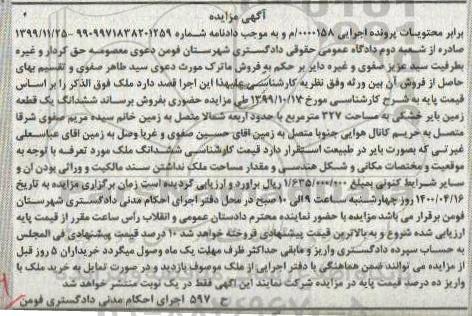 آگهی مزایده
برابر محتویات پرونده اجرایی ۰۰۰۰۱۵۸/م و به موجب دادنامه شماره ۹۹۰۹۹۷۱۸۳۸۲۰۱۲۵۹ -۱۳۹۹/۱۱/۲۵
صادره از شعبه دوم دادگاه عمومی حقوقی دادگستری شهرستان فومن دعوی معصومه حق کردار و غیره
بطرفیت سید عزیز صفوی و غیره دایر بر حکم به فروش ماترک مورث دعوی سید طاهر صفوی و تقسیم بهای
حاصل از فروش آن بین ورثه وفق نظریه کارشناسی علیهذا این اجرا قصد دارد ملک فوق الذکر را بر اساس
قیمت پایه به شرح کارشناسی مورخ ۱۳۹۹/۱۰/۱۷ طی مزایده حضوری بفروش برساند ششدانگ یک قطعه
زمین بایر خشکی به مساحت ۳۲۷ مترمربع با حدود اربعه شمالا متصل به زمین خانم سیده مریم صفوی شرقا
متصل به حریم کانال هوایی جنوبا متصل به زمین اقای حسین صفوی و غربا وصل به زمین اقای عباسعلی
غیرتی که بصورت بایر در طبیعت استقرار دارد قیمت کارشناسی ششدانگ ملک مورد تعرفه با توجه به
موقعیت و مختصات مکانی و شکل هندسی و مقدار مساحت ملک نداشتن سند مالکیت و ورثه‌ای بودن آن و
سایر شرایط کنونی بمبلغ ۱/۶۳۵/۰۰۰/۰۰۰ ریال براورد و ارزیابی گردیده است زمان برگزاری مزایده به تاریخ
۱۴۰۰/۰۴/۱۶ روز چهارشنبه ساعت ۹ الی ۱۰ صبح در محل دفتر اجرای احکام مدنی دادگستری شهرستان
فومن برقرار می باشد مزایده با حضور نماینده محترم دادستان عمومی و انقلاب رأس ساعت مقرر از قیمت پایه
ارزیابی شده شروع و به بالاترین قیمت پیشنهادی فروخته خواهد شد ۱۰ درصد قیمت پیشنهادی فی المجلس
به حساب سپرده دادگستری واریز و مابقی حداکثر ظرف مهلت یک ماه وصول میگردد خریداران ۵ روز قبل
از مزایده می توانند ضمن هماهنگی با دفتر اجرایی از ملک موصوف بازدید و در صورت تمایل به خرید ملک با
واریز ده درصد قیمت پایه در مزایده شرکت نمایند این آگهی فقط در یک نوبت منتشر خواهد شد
ح ۵۹۷ اجرای احکام مدنی دادگستری فومن